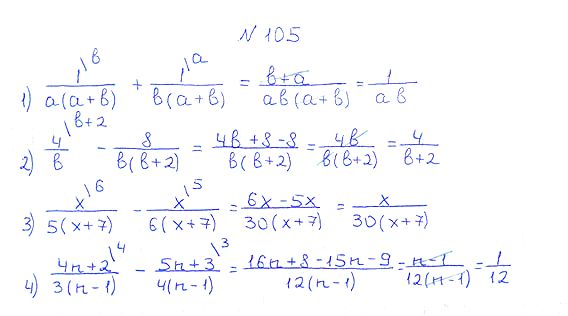 N 105
1) 1\b / a(a+b) + 1\a / b(a+b) = b+a / ab(a+b) = 1 / ab
2) 4\b+2 / b - 8 / b(b+2) = 4b+8-8 / b(b+2) = 4b / b(b+2) = 4 / b+2
3) x\6 / 5(x+7) - x\5 / 6(x+7) = 6x-5x / 30(x+7) = x / 30(x+7)
4) 4n+2\4 / 3(n-1) - 5n+3\3 / 4(n-1) = 16n+8-15n-9 / 12(n-1) = n-1 / 12(n-1) = 1 / 12